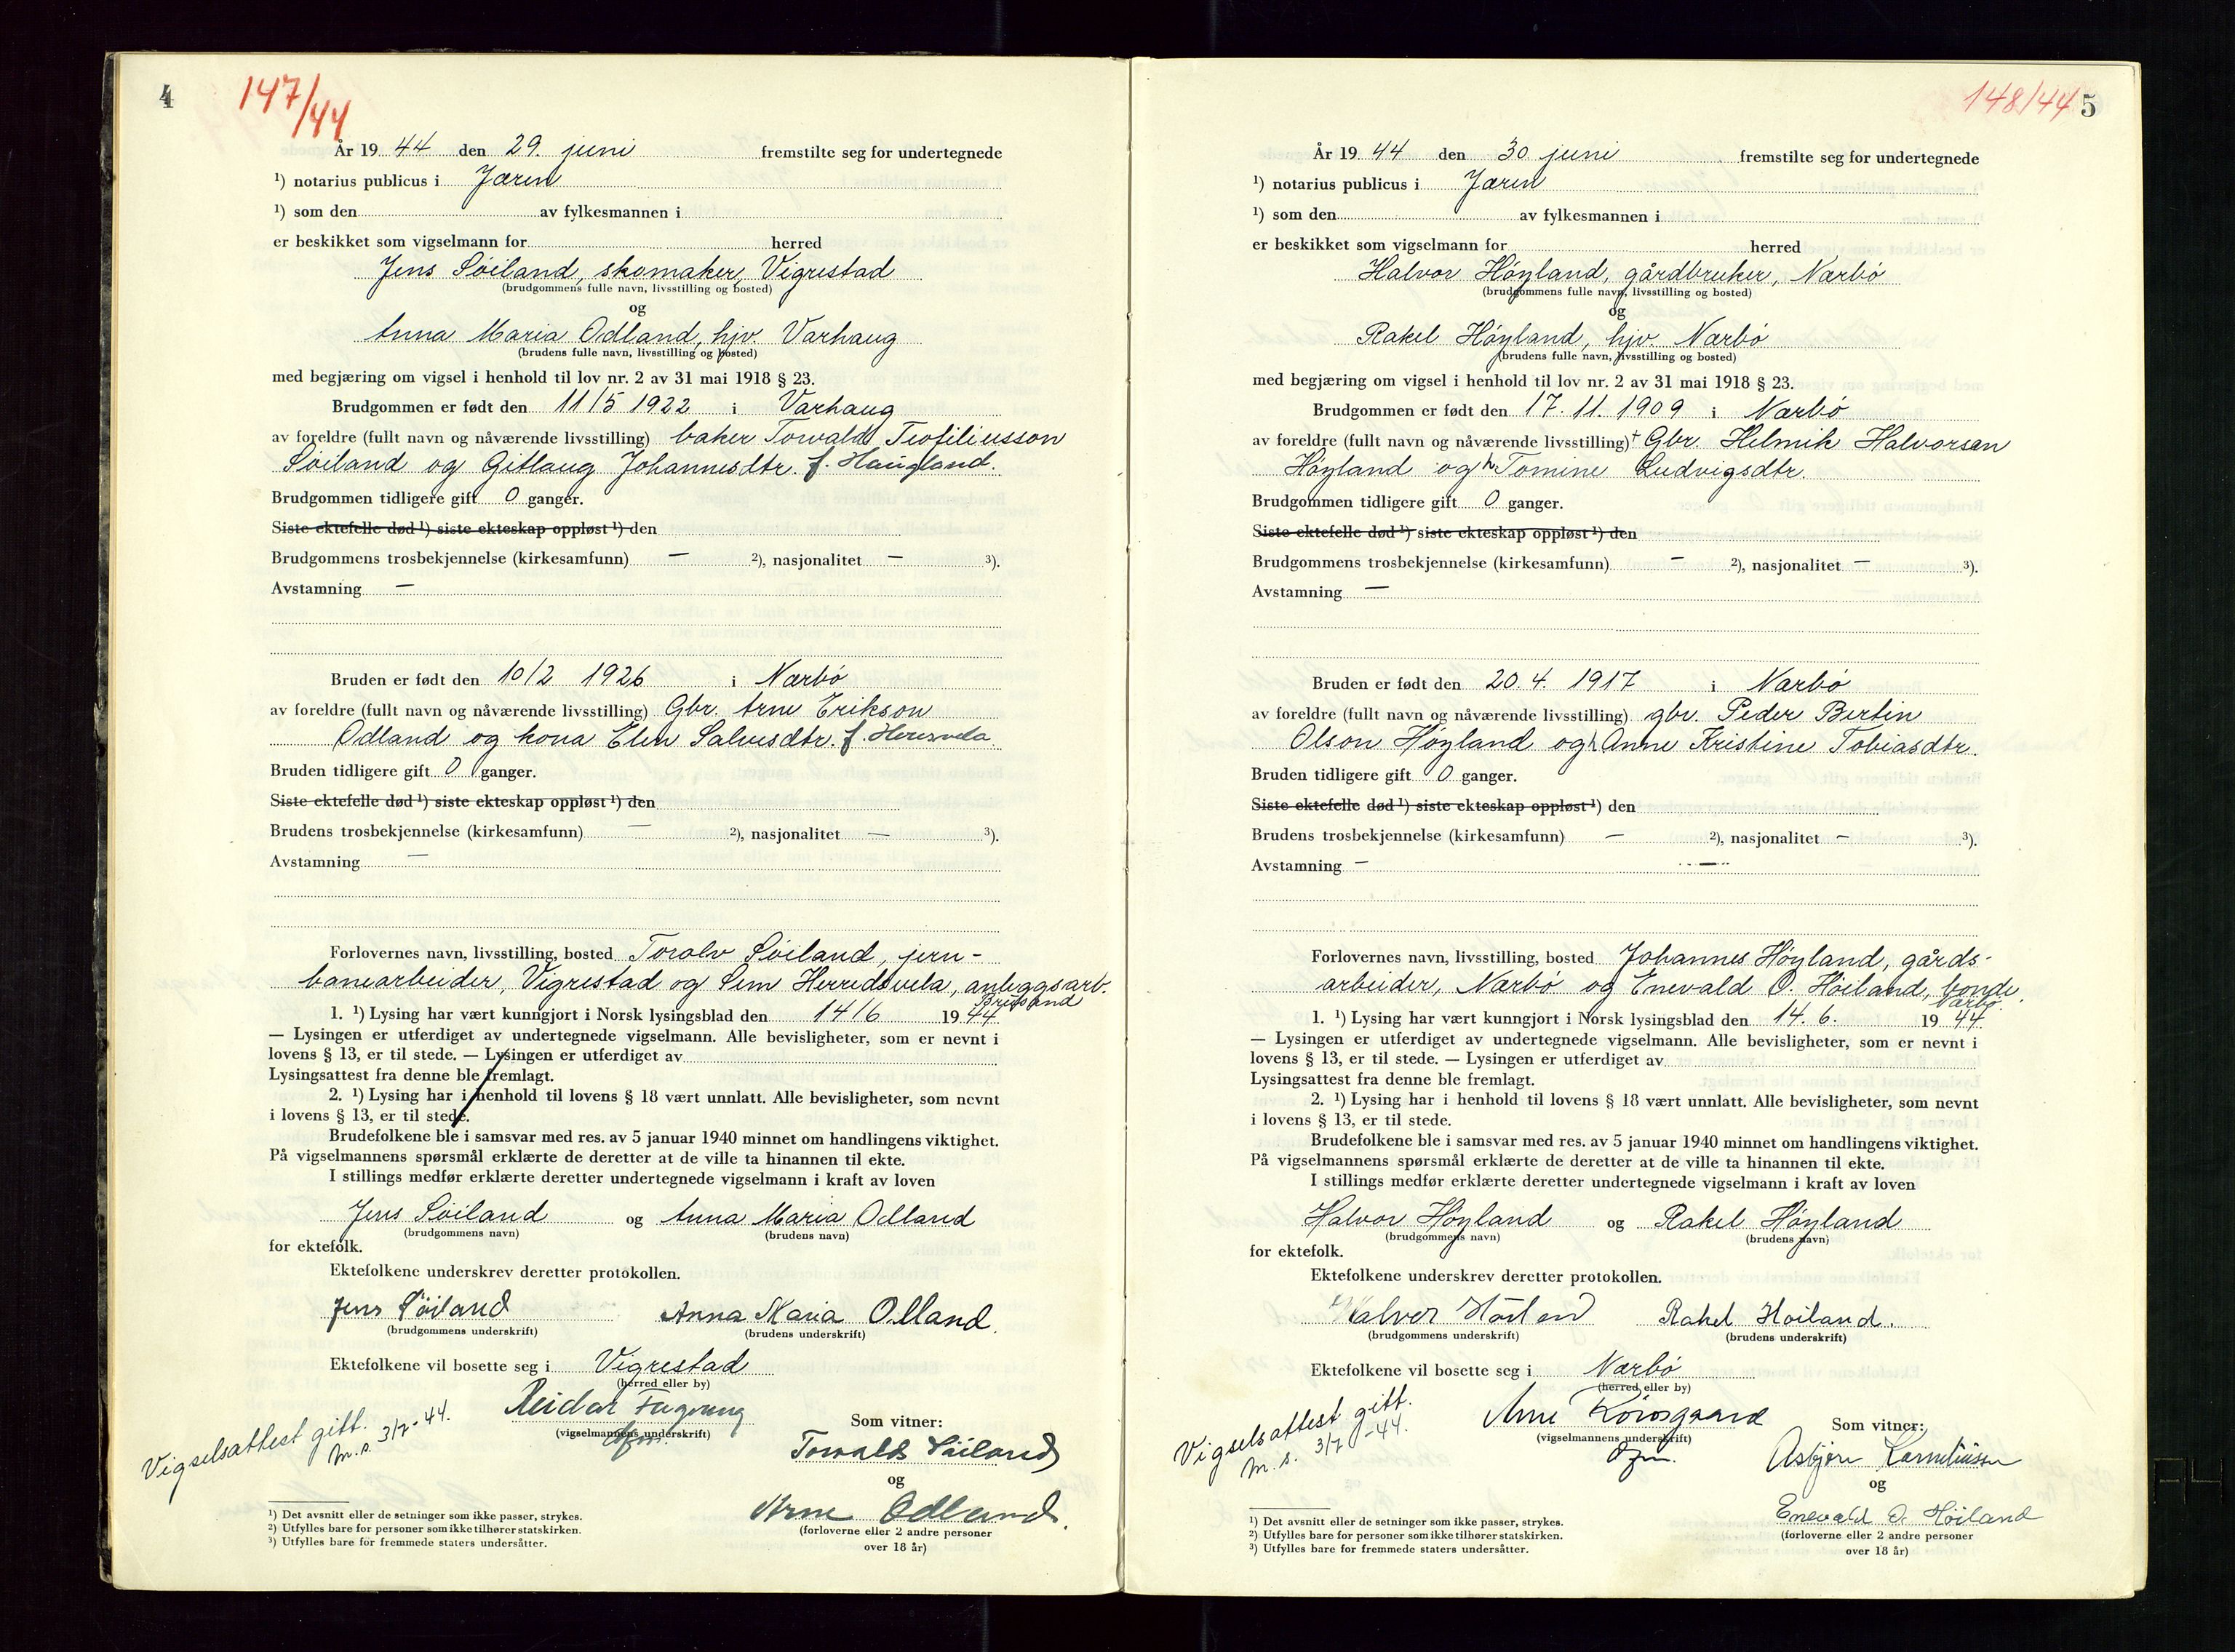 4
147/44
År 19 44 den 29. juni fremstilte seg for undertegnede
¹) notarius publicus i Jæren
¹) som den av fylkesmannen i
er beskikket som vigselmann for herred
Jens Söiland, skomaker, Vigrestad
(brudgommens fulle navn, livsstilling og bosted)
og
Anna Maria Odland, hjv. Varhaug
(brudens fulle navn, livsstilling og bosted)
med begjæring om vigsel i henhold til lov nr. 2 av 31 mai 1918 § 23.
Brudgommen er født den 11/5 1922 i Varhaug
av foreldre (fullt navn og nåværende livsstilling) baker Torvald Teofiliusson
Söiland og Gitlaug Johannesdtr. f. Haugland.
Brudgommen tidligere gift 0 ganger.
Siste ektefelle død ¹) siste ekteskap oppløst ¹) den
Brudgommens trosbekjennelse (kirkesamfunn) — ²), nasjonalitet — ³).
Avstamning —
Bruden er født den 10/2 1926 i Nærbö
av foreldre (fullt navn og nåværende livsstilling) Gbr. Arne Erikson
Odland og kona Elen Salvesdtr. f.
Bruden tidligere gift 0 ganger.
Siste ektefelle død ¹) siste ekteskap oppløst ¹) den
Brudens trosbekjennelse (kirkesamfunn) — ²), nasjonalitet — ³).
Avstamning —
Forlovernes navn, livsstilling, bosted Toralv Söiland, jern-
banearbeider, Vigrestad og Sem Herredsvela, anleggsarb.
Brusand
1. ¹) Lysing har vært kunngjort i Norsk lysingsblad den 14/6 19 44
— Lysingen er utferdiget av undertegnede vigselmann. Alle bevisligheter, som er nevnt i
lovens § 13, er til stede. — Lysingen er utferdiget av
Lysingsattest fra denne ble fremlagt.
2. ¹) Lysing har i henhold til lovens § 18 vært unnlatt. Alle bevisligheter, som nevnt
i lovens § 13, er til stede.
Brudefolkene ble i samsvar med res. av 5 januar 1940 minnet om handlingens viktighet.
På vigselmannens spørsmål erklærte de deretter at de ville ta hinannen til ekte.
I stillings medfør erklærte deretter undertegnede vigselmann i kraft av loven
Jens Söiland og Anna Maria Odland
(brudgommens navn) (brudens navn)
for ektefolk.
Ektefolkene underskrev deretter protokollen.
Jens Söiland Anna Maria Odland.
(brudgommens underskrift) (brudens underskrift)
Ektefolkene vil bosette seg i Vigrestad
(herred eller by)
Reidar
(vigselmannens underskrift)
Vigselsattest gitt.
m.s. 3/7-44.
Som vitner:
Torvald Söiland
og
Arne Odland.
(forloverne eller 2 andre personer
over 18 år)
¹) Det avsnitt eller de setninger som ikke passer, strykes.
²) Utfylles bare for personer som ikke tilhører statskirken.
³) Utfylles bare for fremmede staters undersåtter.
148/44 5
År 19 44 den 30 juni fremstilte seg for undertegnede
¹) notarius publicus i Jæren
¹) som den av fylkesmannen i
er beskikket som vigselmann for herred
Halvor Höyland, gårdbruker, Nærbö
(brudgommens fulle navn, livsstilling og bosted)
og
Rakel Höyland, hjv. Nærbö
(brudens fulle navn, livsstilling og bosted)
med begjæring om vigsel i henhold til lov nr. 2 av 31 mai 1918 § 23.
Brudgommen er født den 17.11.1909 i Nærbö
av foreldre (fullt navn og nåværende livsstilling) † Gbr. Helmik Halvorsen
Höyland og h. Tomine Ludvigsdtr.
Brudgommen tidligere gift 0 ganger.
Siste ektefelle død ¹) siste ekteskap oppløst ¹) den
Brudgommens trosbekjennelse (kirkesamfunn) — ²), nasjonalitet — ³).
Avstamning —
Bruden er født den 20.4.1917 i Nærbö
av foreldre (fullt navn og nåværende livsstilling) gbr. Peder Bertin
Olson Höyland og h. Anne Kristine Tobiasdtr.
Bruden tidligere gift 0 ganger.
Siste ektefelle død ¹) siste ekteskap oppløst ¹) den
Brudens trosbekjennelse (kirkesamfunn) — ²), nasjonalitet — ³).
Avstamning — —
Forlovernes navn, livsstilling, bosted Johannes Höyland, gårds-
arbeider, Nærbö og Enevald O. Höiland, bonde,
Nærbö
1. ¹) Lysing har vært kunngjort i Norsk lysingsblad den 14.6. 19 44
— Lysingen er utferdiget av undertegnede vigselmann. Alle bevisligheter, som er nevnt i
lovens § 13, er til stede. — Lysingen er utferdiget av
Lysingsattest fra denne ble fremlagt.
2. ¹) Lysing har i henhold til lovens § 18 vært unnlatt. Alle bevisligheter, som nevnt
i lovens § 13, er til stede.
Brudefolkene ble i samsvar med res. av 5 januar 1940 minnet om handlingens viktighet.
På vigselmannens spørsmål erklærte de deretter at de ville ta hinannen til ekte.
I stillings medfør erklærte deretter undertegnede vigselmann i kraft av loven
Halvor Höyland og Rakel Höyland
(brudgommens navn) (brudens navn)
for ektefolk.
Ektefolkene underskrev deretter protokollen.
Halvor Rakel Höiland.
(brudgommens underskrift) (brudens underskrift)
Ektefolkene vil bosette seg i Nærbö
(herred eller by)
Arne
(vigselmannens underskrift)
Vigselsattest gitt.
m.s. 3/7-44.
Som vitner:
Asbjørn Korneliussen
og
Enevald O. Höiland
(forloverne eller 2 andre personer
over 18 år)
¹) Det avsnitt eller de setninger som ikke passer, strykes.
²) Utfylles bare for personer som ikke tilhører statskirken.
³) Utfylles bare for fremmede staters undersåtter.